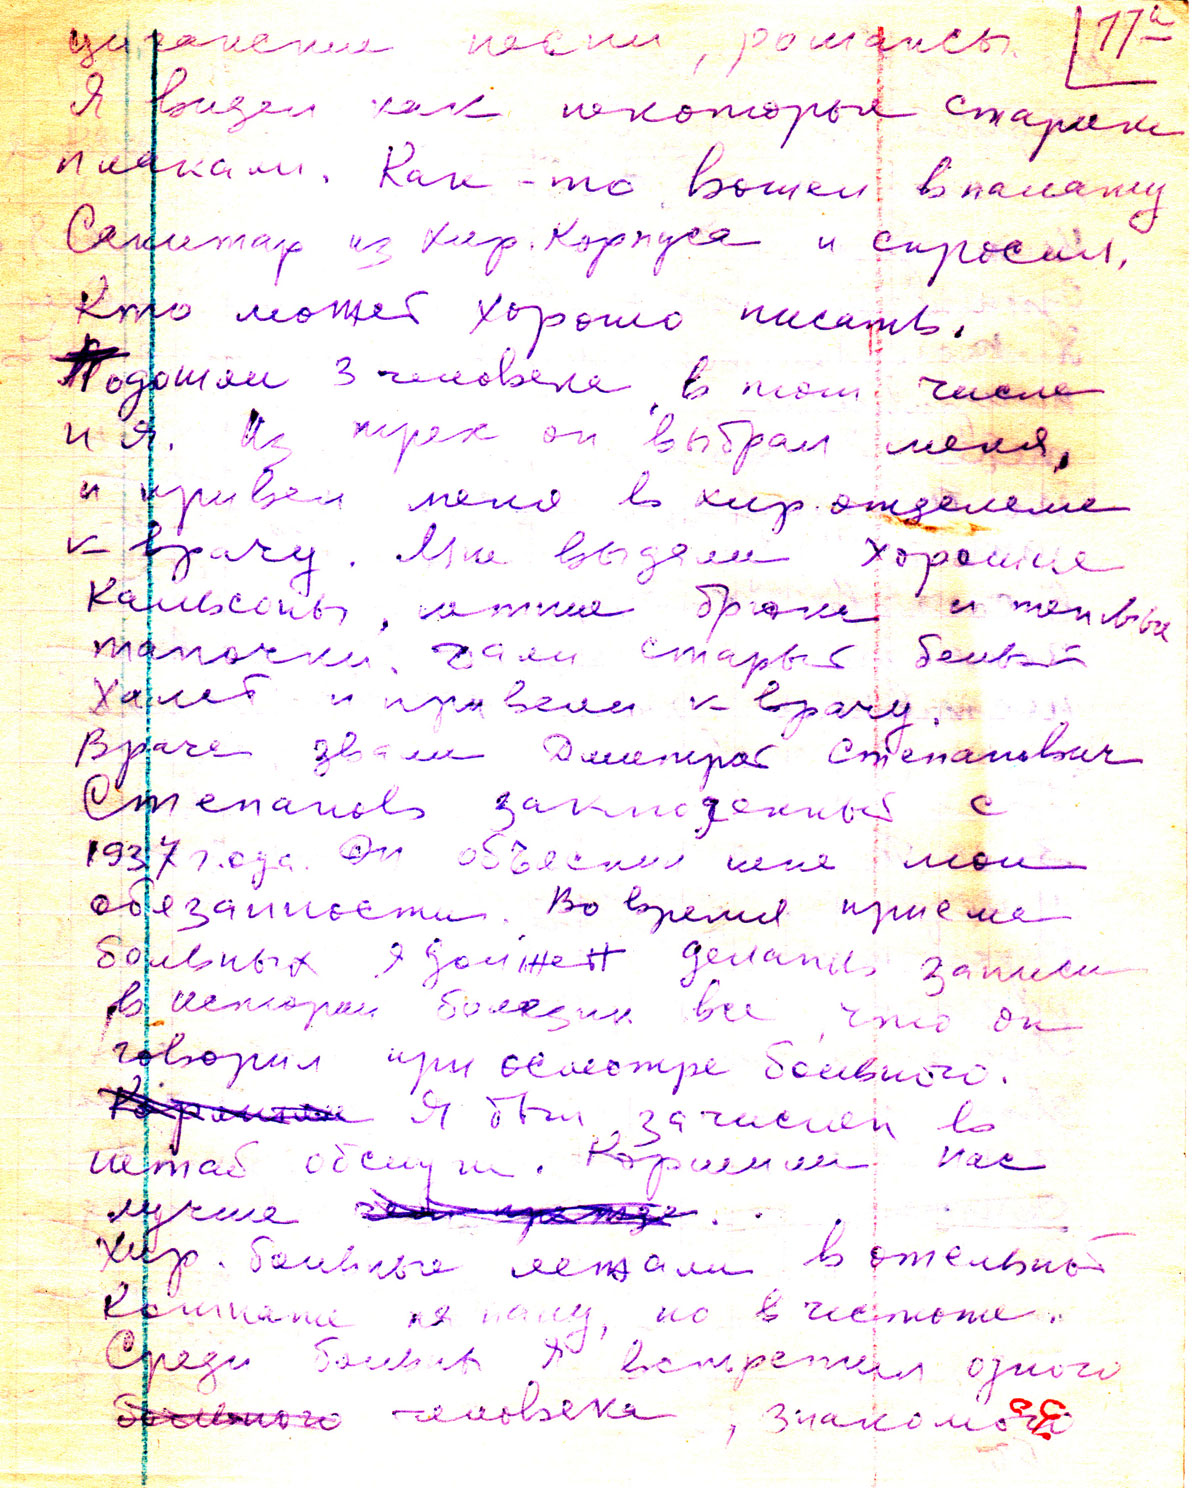 цыганские песни, романсы. 17а
Я видел как некоторые старики
плакали. Как-то вошел в палату
Санитар из хир. Корпуса и спросил,
Кто может хорошо писать.
Подошли 3 человека, в том числе
и я. Из трех он выбрал меня,
и привел меня в хир. отделение
к врачу. Мне выдали хорошие
Кальсоны, летние брюки и теплые
тапочки. Дали старый белый
Халат и привели к врачу.
Врача звали Дмитрий Степанович
Степанов заключенный с
1937 года. Он объяснил мне мои
обязанности. Во время приема
больных я должен делать записи
в истории болезни все, что он
говорил при осмотре больного.
Кормили Я был зачислен в
штаб обслуги. Кормили нас
лучше чем прежде . . .
Хир. больные лежали в отельной
Комнате на полу, но в чистоте.
Среди больных я встретил одного
больного человека, знакомого